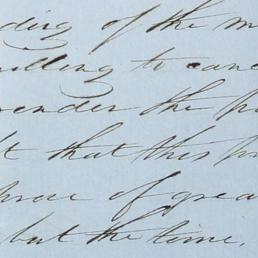 ding of the m
willing to canc
render the p
t that this pr
prove of grea
but the time,